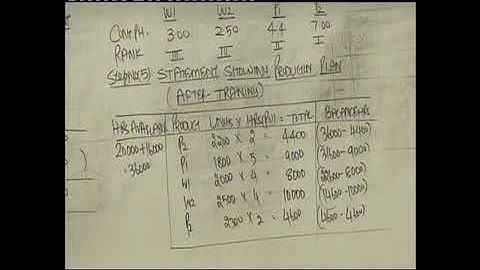 W1 W2 P1 P2
Cont.PH. 300 250 44 700
RANK III IV II I
Step No(5) STATEMENT SHOWING PRODUCTION PLAN
(AFTER-TRAINING)
HRS AVAILABLE PRODUCT UNITS X HRS(PU) = TOTAL BALANCE HRS
20000+16000 P2 2200 X 2 = 4400 (36000-4400)
=36000 P1 1800 X 5 = 9000 (31600-9000)
W1 2000 X 4 = 8000 (22600-8000)
W2 2500 X 4 = 10000 (14600-10000)
P2 2300 X 2 = 4600 (4600-4600)